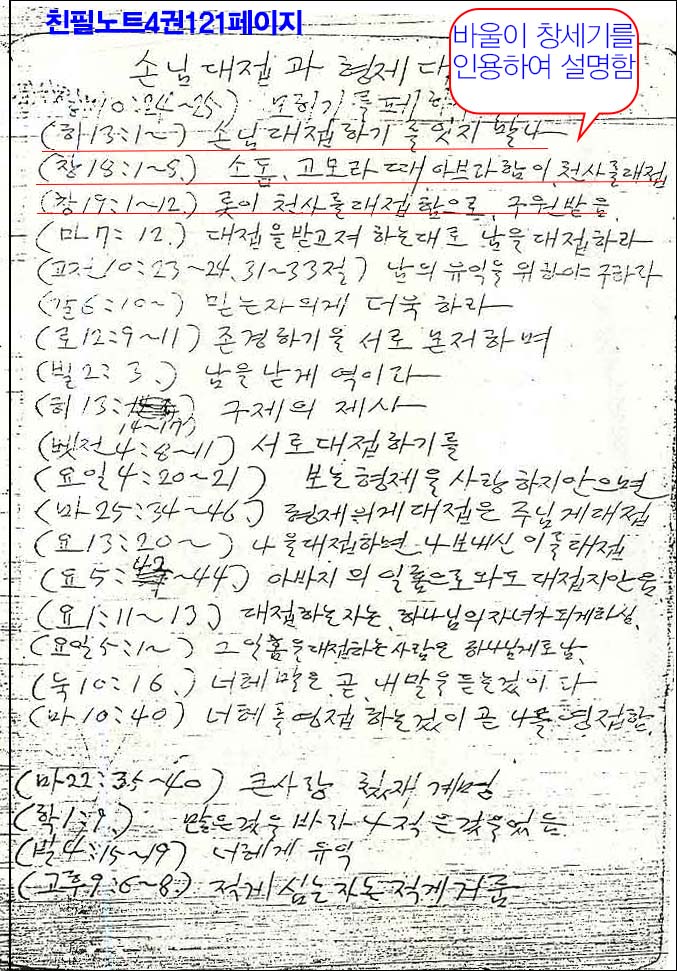 친필노트4권121페이지
바울이 창세기를
인용하여 설명함
손님 대접 과 형제 대
10:24~25) 모히기를 폐
(히 13:1~) 손님 대접하기를 잇지 말나
(창 18:1~8.) 소돔, 고모라 때, 아브라함이, 천사를 대접
(창 19:1~12.) 롯이 천사를 대접함으로, 구원받음
(마 7:12.) 대접을 받고져 하는대로 남을 대접하라
(고전 10:23~24, 31~33절) 남의 유익을 위하야 구하라
(갈 6:10~) 믿는자의게 더욱 하라
(로 12:9~11) 존경하기을 서로 몬저하며
(빌 2:3.) 남을 낟게 역이라
(히 13: 14~17,) 구제의 제사
(벳전 4:8~11) 서로 대접하기를
(요일 4:20~21) 보는 형제을 사랑하지 안으면
(마 25:34~46.) 형제의게 대접은 주님게 대접
(요 13:20~) 나을 대접하면 나 보내신 이를 대접
(요 5:42~44.) 아바지의 일름으로 와도 대접지 안음.
(요 1:11~13.) 대접하는 자는, 하나님의 자녀가 되게 하심.
(요일 5:1~) 그 일홈을 대접하는 사람은 하나님게로 남.
(눅 10:16.) 너헤 말은 곧 내 말을 듣는 겄이다
(마 10:40) 너헤를 영접하는 겄이 곧 나를 영접함.
(마 22:35~40) 큰 사랑 첫재 계명
(학 1:9.) 많은 겄을 바라나 적은 겄을 었든
(빌 4:15~19) 너헤게 유익
(고후 9:6~8.) 적게 심는 자는 적게 거둠